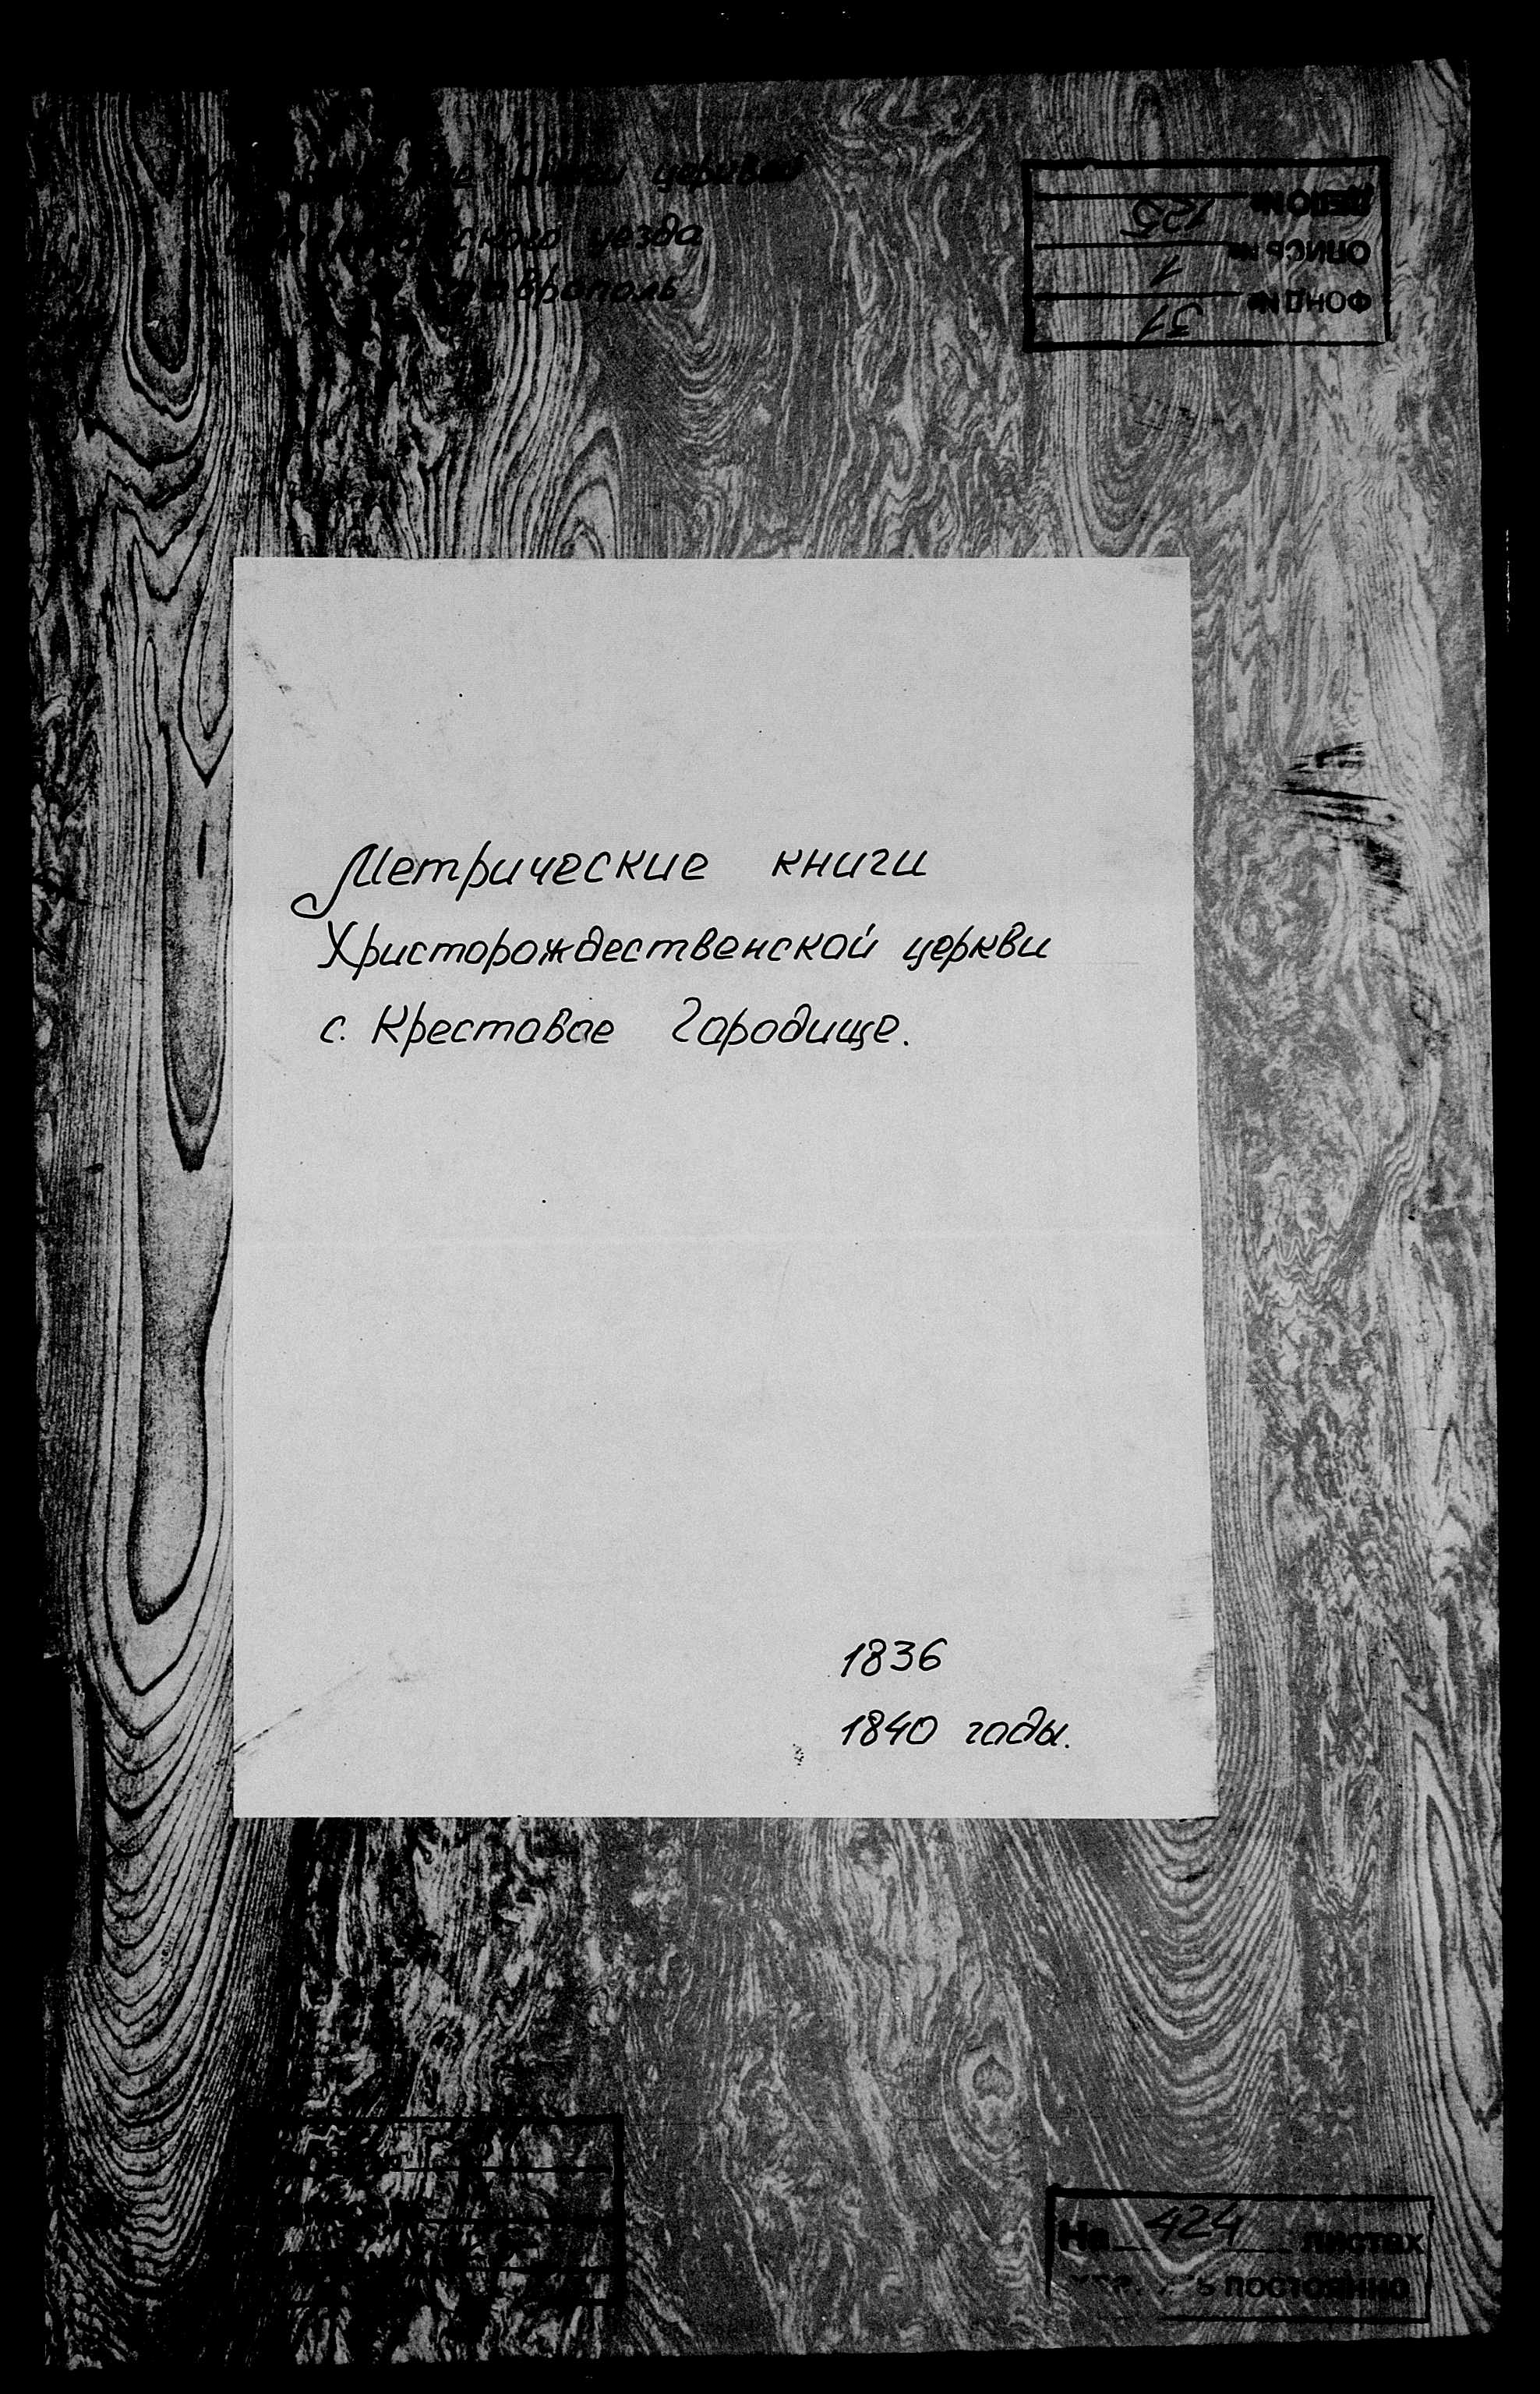 книги церквей
уезда
ДЕЛО № 125
ОПИСЬ № 1
ФОНД № 31
Метрические книги
Христорождественской церкви
с. Крестовое Городище.
1836
1840 годы.
На 424 листах
постоянно